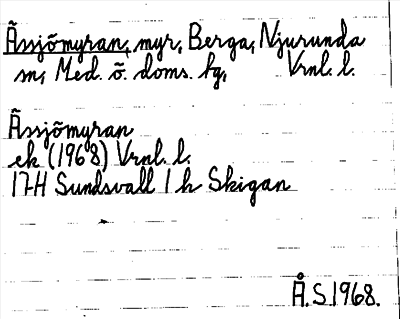 Ässjömyran, myr, Berga, Njurunda
sn, Med. ö. doms. tg, Vrnl. l.
Ässjömyran
ek (1968) Vrnl. l.
17H Sundsvall 1 h Skigan
Å.S. 1968.